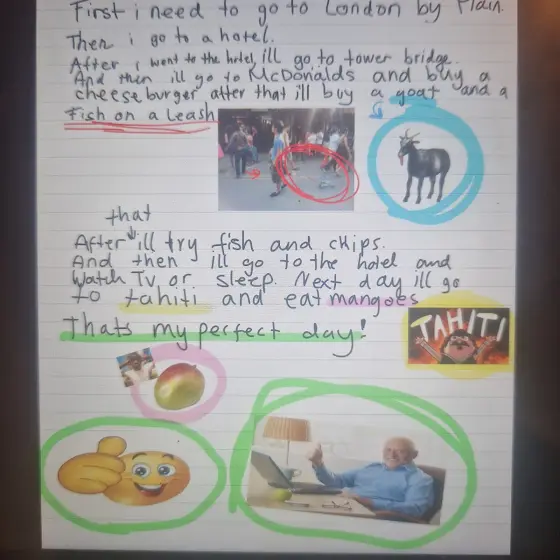 First i need to go to London by Plain.
Then i go to a hotel.
After i went to the hotel ill go to tower bridge.
And then ill go to McDonalds and buy a
cheese burger after that ill buy a goat and a
Fish on a Leash
that
After ill try fish and chips.
And then ill go to the hotel and
Watch Tv or sleep. Next day ill go
to tahiti and eat mangoes
Thats my perfect day!
TAHITI